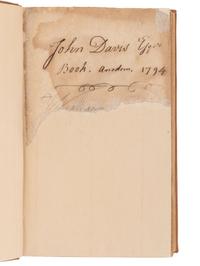 John Davis Esqr
Book. Ansdem. 1794